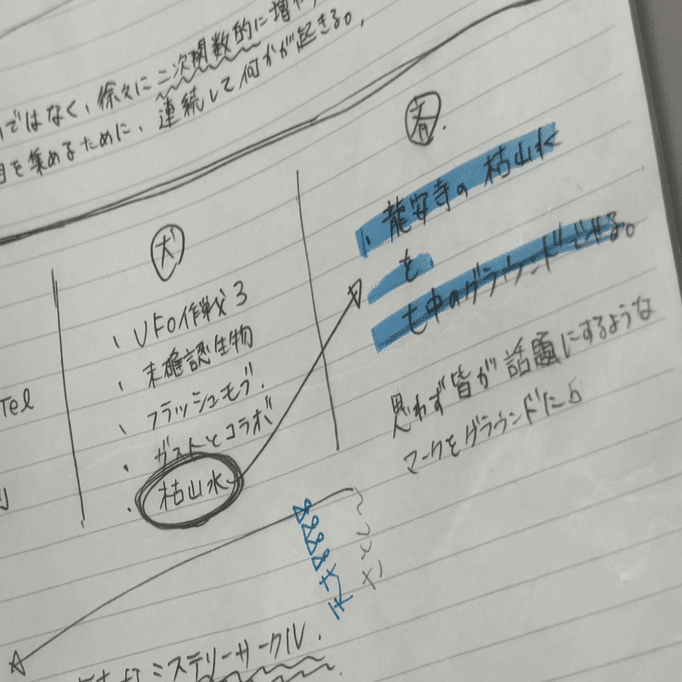 ではなく、徐々に二次関数的に増や
目を集めるために、連続して何かが起きる。
犬
、UFO作戦3
、未確認生物
、フラッシュモブ.
・ガストとコラボ
・枯山水
Tel
、龍安寺の枯山水
を
七中のグラウンドで作る。
思わず皆が話題にするような
マークをグラウンドに
ミステリーサークル.